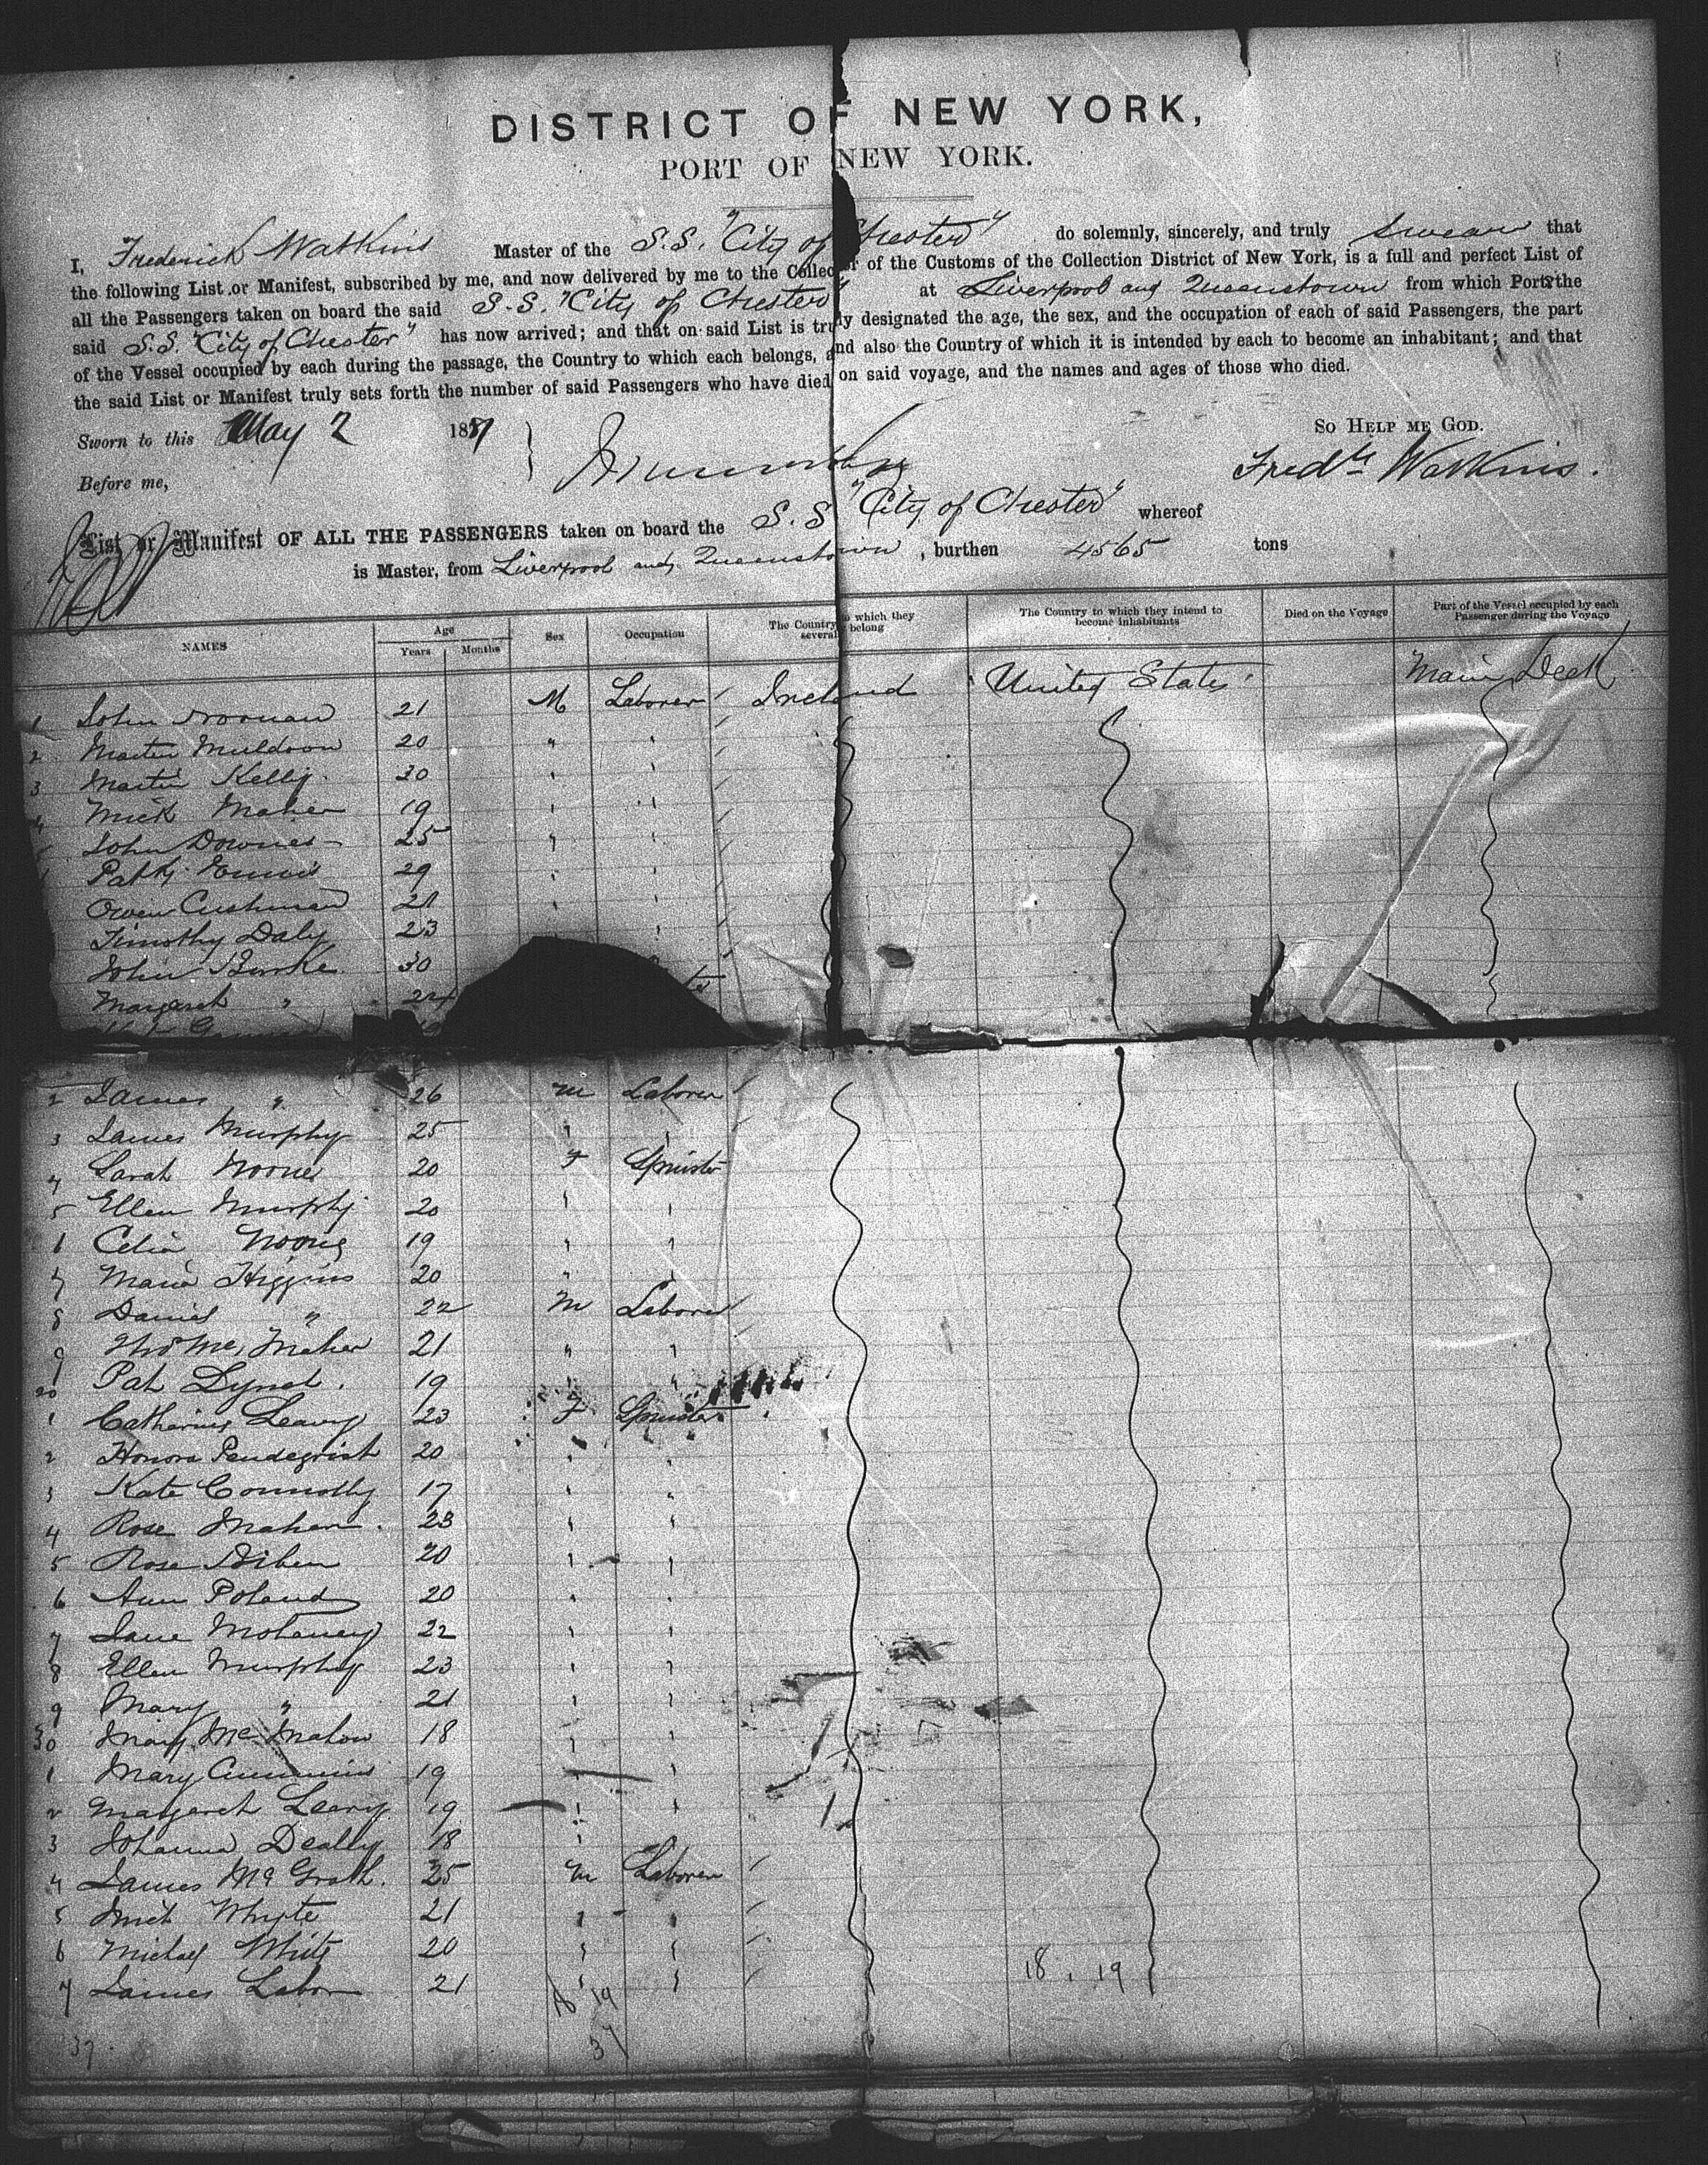 DISTRICT OF NEW YORK,
PORT OF NEW YORK.
I, Frederick Watkins Master of the S.S. "City of Chester" do solemnly, sincerely, and truly swear that
the following List or Manifest, subscribed by me, and now delivered by me to the Collector of the Customs of the Collection District of New York, is a full and perfect List of
all the Passengers taken on board the said S.S. "City of Chester" at Liverpool and Queenstown from which Ports the
said S.S. "City of Chester" has now arrived; and that on said List is truly designated the age, the sex, and the occupation of each of said Passengers, the part
of the Vessel occupied by each during the passage, the Country to which each belongs, and also the Country of which it is intended by each to become an inhabitant; and that
the said List or Manifest truly sets forth the number of said Passengers who have died on said voyage, and the names and ages of those who died.
Sworn to this May 2 1887 So Help me God.
Before me, Fredk Watkins.
List or Manifest OF ALL THE PASSENGERS taken on board the S.S "City of Chester" whereof
is Master, from Liverpool and Queenstown, burthen 4565 tons
NAMES Age Years Months Sex Occupation The Country to which they severally belong The Country to which they intend to become inhabitants Died on the Voyage Part of the Vessel occupied by each Passenger during the Voyage
1 John Noonan 21 M Laborer Ireland United States Main Deck
2 Martin Muldoon 20 " "
3 Martin Kelly 30 " "
4 Mick Maher 19 " "
5 John Downes 25 " "
Patk Ennis 29 " "
Owen Cushman 21 " "
Timothy Daly 23 "
John Burke 30
Margaret " 24
2 James " 26 M Laborer
3 James Murphy 25 " "
4 Sarah Noone 20 F Spinster
5 Ellen Murphy 20 " "
6 Celia Noone 19 " "
7 Maria Higgins 20 " "
8 Daniel " 22 M Laborer
9 Maher 21 " "
20 Pat Lynch. 19 " "
1 Catherine Leavy 23 F Spinster
2 Honora Pendegrist 20 " "
3 Kate Connolly 17 " "
4 Rose Maher. 23 " "
5 Rose 20 " "
6 Ann Poland 20 " "
7 Jane Mohaney 22 " "
8 Ellen Murphy 23 " "
9 Mary " 21 " "
30 Mary McMahon 18 " "
1 Mary Cummins 19 "
2 Margaret Leary 19 " "
3 Johanna Dealy 18 "
4 James McGrath. 25 M Laborer
5 Mich Whyte 21 " "
6 Michael White 20 " "
7 James Labor 21 " "
18 19 18. 19
37 37